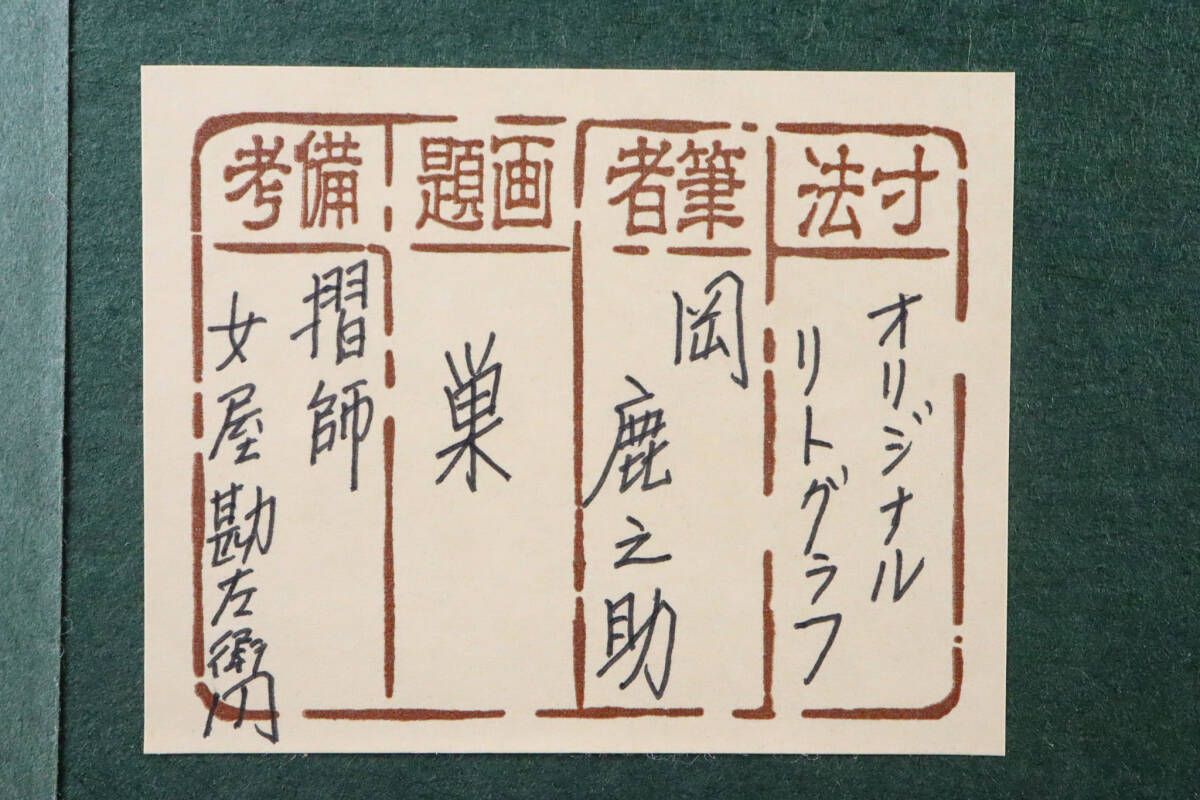 寸法
オリジナル
リトグラフ
筆者
岡
鹿之助
画題
巣
備考
摺師
女屋勘左衛門